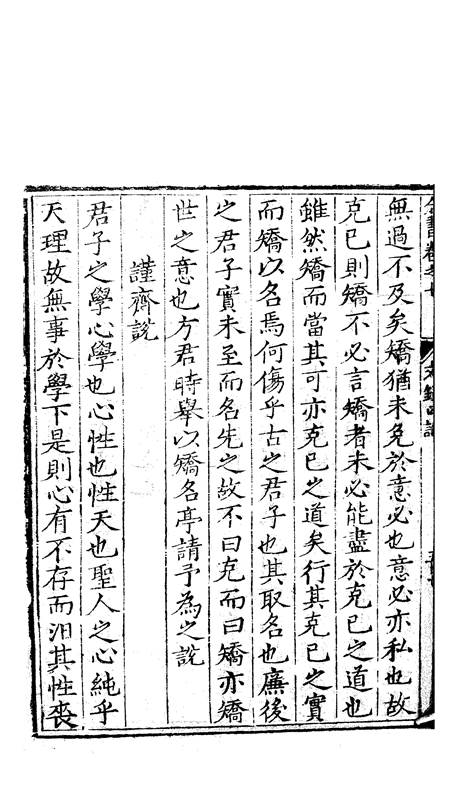 無過不及矣矯猶未免於意必也意必亦私也故
克已則矯不必言矯者未必能盡於克已之道也
雖然矯而當其可亦克已之道矣行其克已之實
而矯以名焉何傷乎古之君子也其取名也廉後
之君子實未至而名先之故不曰克而曰矯亦矯
世之意也方君時舉以矯名亭請予為之說
謹齋說
君子之學心學也心性也性天也聖人之心純乎
天理故無事於學下是則心有不存而汨其性喪